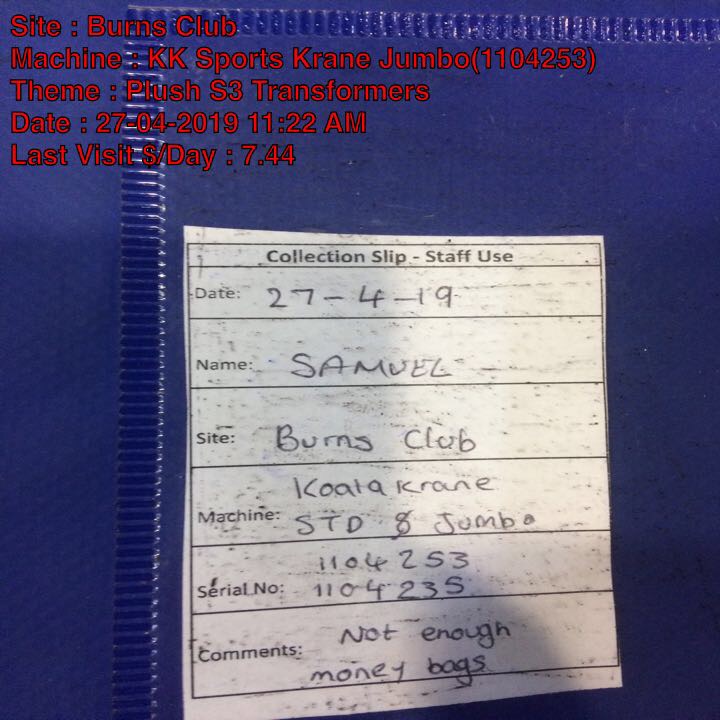 Site : Burns Club
Machine : KK Sports Krane Jumbo(1104253)
Theme : Plush S3 Transformers
Date : 27-04-2019 11:22 AM
Last Visit $/Day : 7.44
Collection Slip - Staff Use
Date: 27-4-19
Name: SAMUEL
Site: Burns Club
Koala Krane
Machine: STD & Jumbo
1104253
Serial No: 1104235
Not enough
Comments: money bags